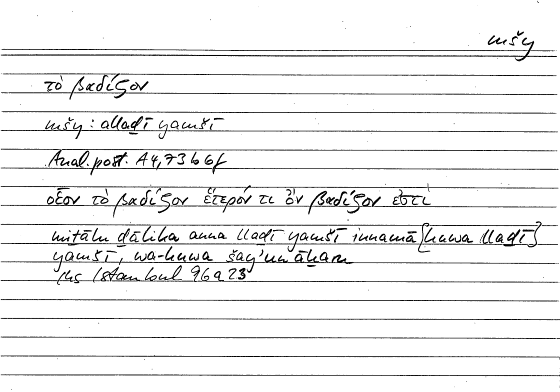 mšy
τὸ βαδίζον
mšy : alladī yamšī
Anal. post. A4, 73b6f
οἷον τὸ βαδίζον ἕτερόν τι ὂν βαδίζον ἐστί
miṯālu ḏālika anna lladī yamšī innamā {huwa lladī}
yamšī, wa-huwa šay'un āḫaru
Ms Istanbul 96a23